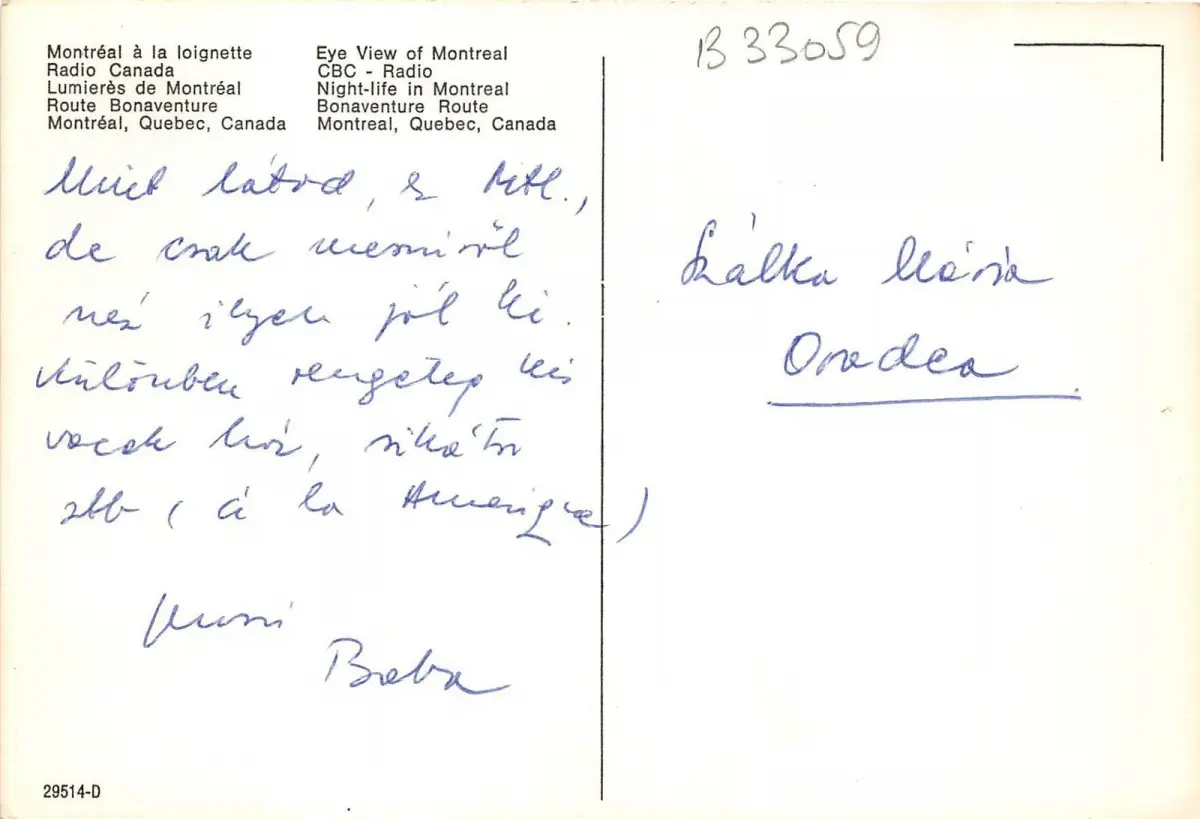 Montréal à la loignette
Radio Canada
Lumierès de Montréal
Route Bonaventure
Montréal, Quebec, Canada
Eye View of Montreal
CBC - Radio
Night-life in Montreal
Bonaventure Route
Montreal, Quebec, Canada
B 33059
Mint látod, ez Mtl.,
de csak messziről
néz ilyen jól ki.
Különben rengeteg kis
vacak ház, sikátor
stb ( à la Amerique )
pussi
Baba
Szálka Mária
Oradea
29514-D